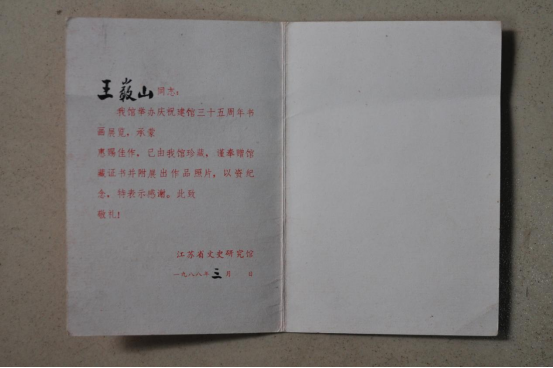 王嶽山同志：
我馆举办庆祝建馆三十五周年书
画展览，承蒙
惠赐佳作，已由我馆珍藏，谨奉赠馆
藏证书并附展出作品照片，以资纪
念。特表示感谢。此致
敬礼！
江苏省文史研究馆
一九八八年三月 日